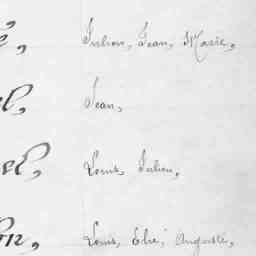 é, Julien, Jean, Marie,
el, Jean,
el, Louis, Julien,
on, Louis, Elie, Auguste,